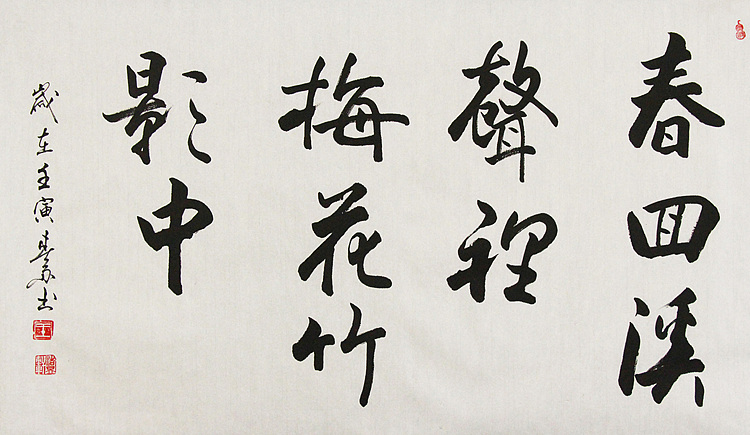 春回溪
聲裡
梅花竹
影中
歲在壬寅春書